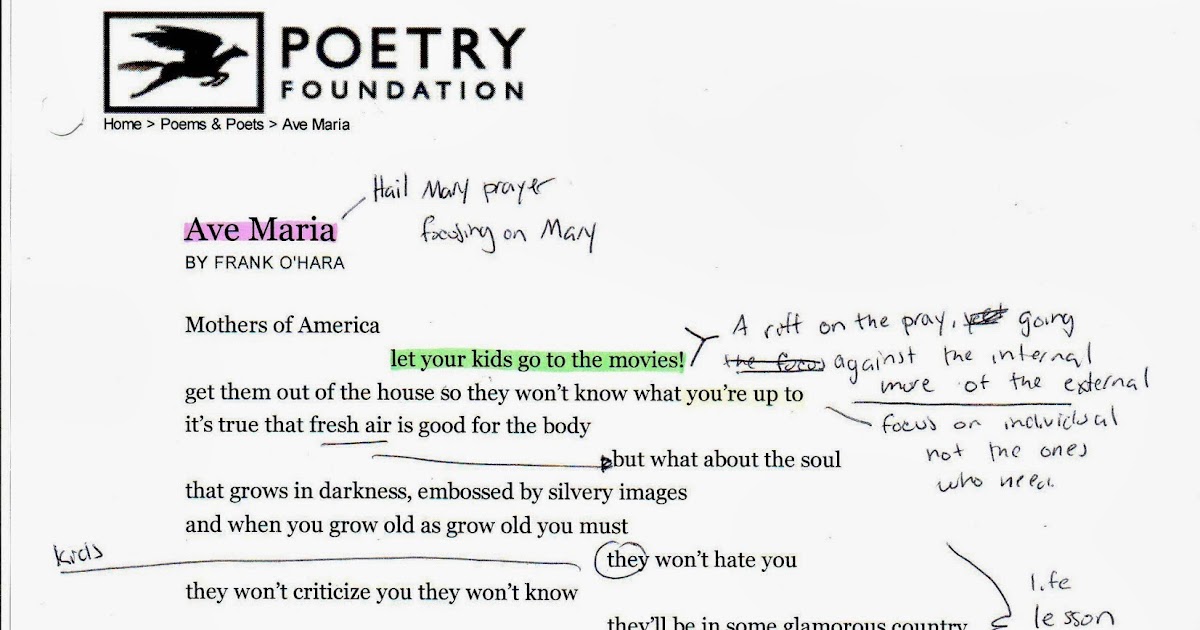 POETRY
FOUNDATION
Home > Poems & Poets > Ave Maria
Hail Mary prayer
focusing on Mary
Ave Maria
BY FRANK O'HARA
Mothers of America
let your kids go to the movies!
get them out of the house so they won't know what you're up to
it's true that fresh air is good for the body
but what about the soul
that grows in darkness, embossed by silvery images
and when you grow old as grow old you must
they won't hate you
they won't criticize you they won't know
they'll be in some glamorous country
A riff on the pray, going
the focus against the internal
more of the external
focus on individual
not the ones
who need.
kids
life
lesson